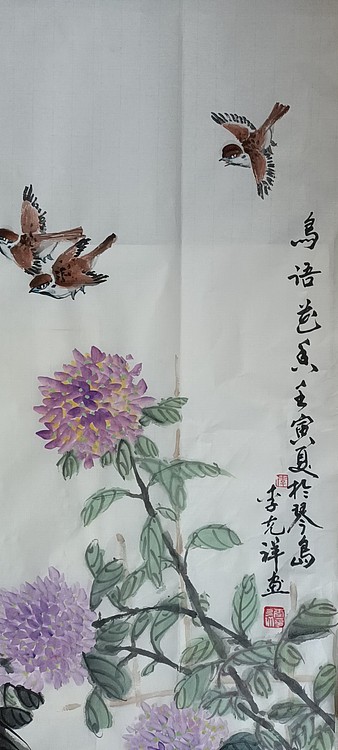 鸟语花香壬寅夏於琴岛
李克祥画